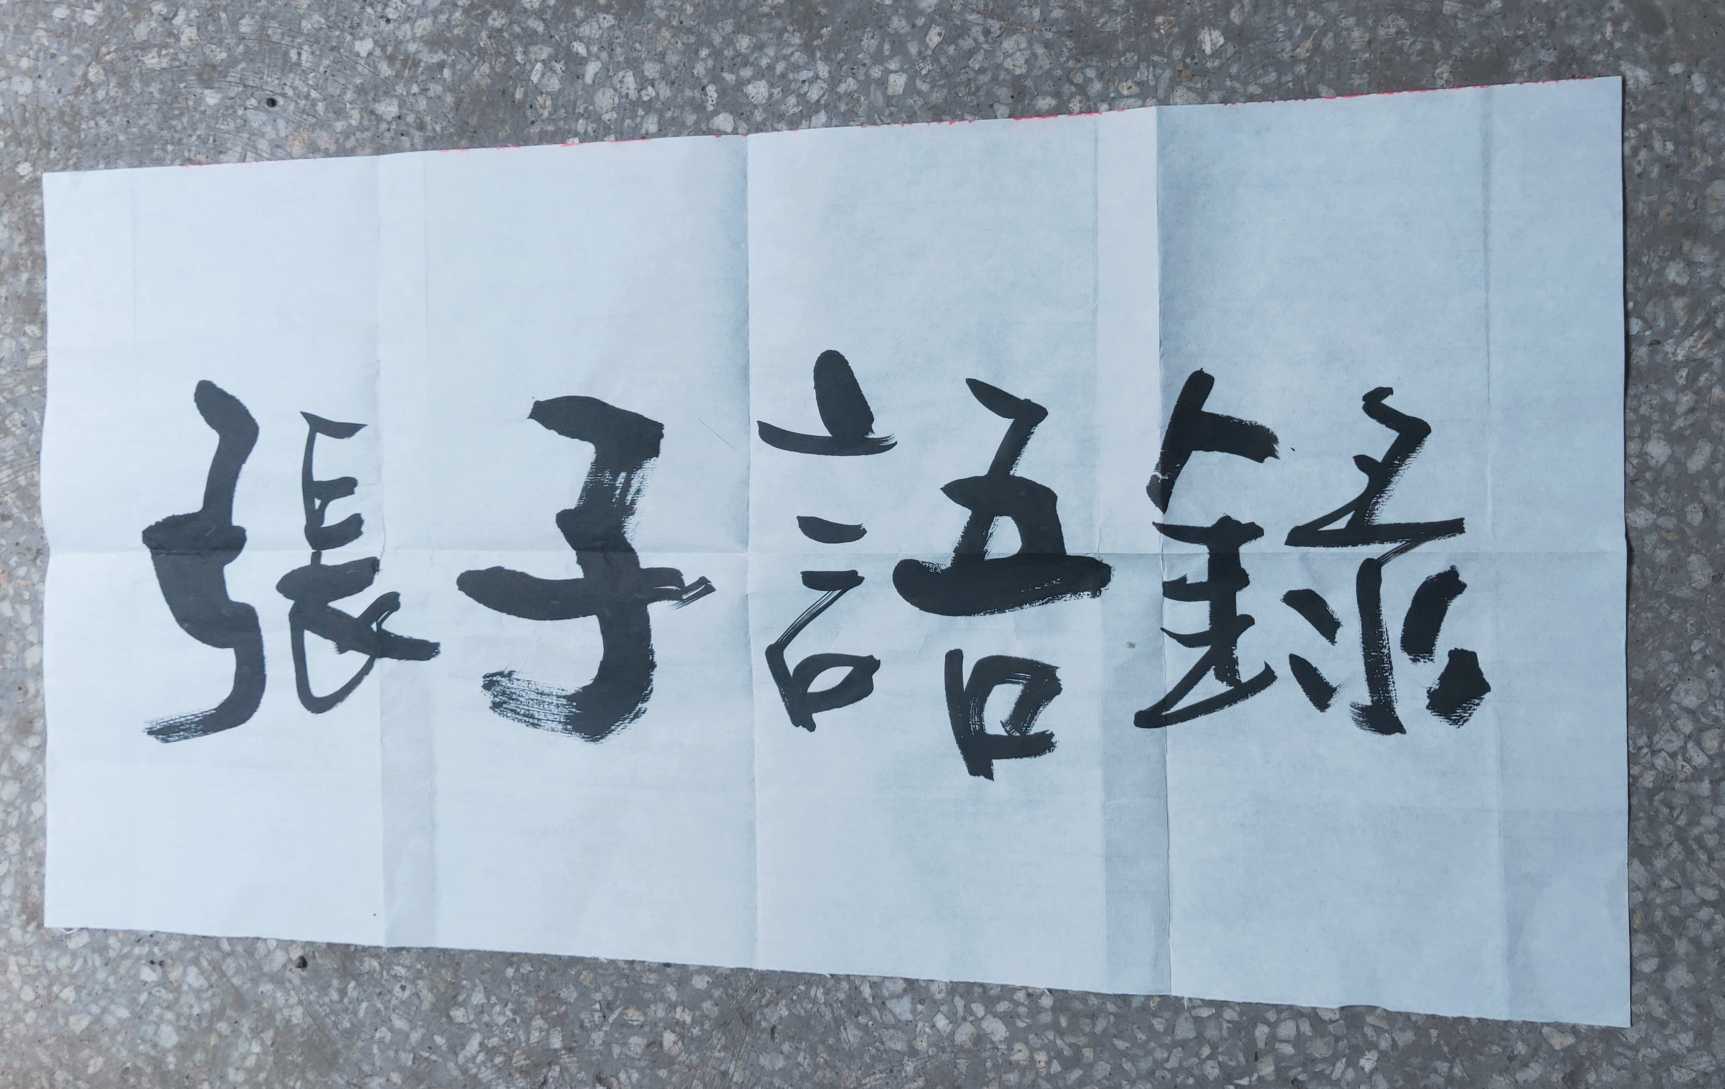 張子語錄